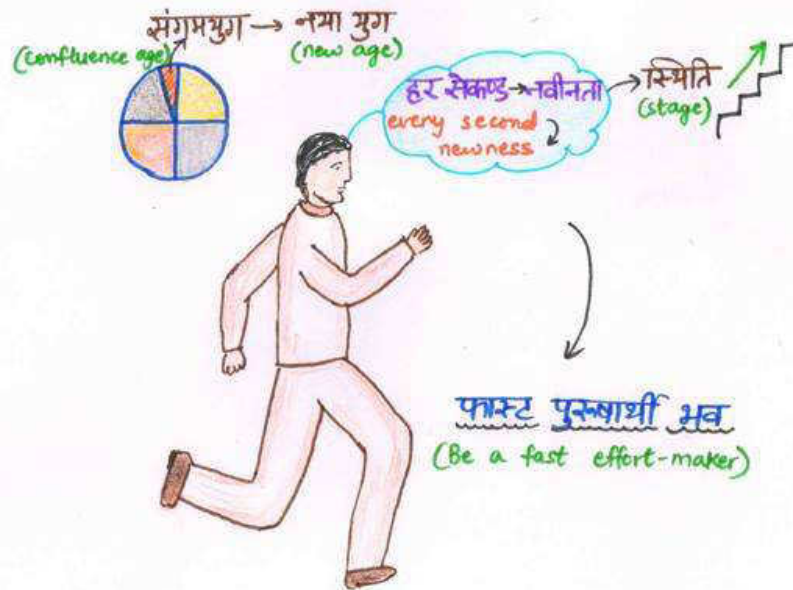 संगमयुग → नया युग
(confluence age) (new age)
हर सेकण्ड → नवीनता → स्थिति
every second (stage)
newness
फास्ट पुरुषार्थी भव
(Be a fast effort-maker)